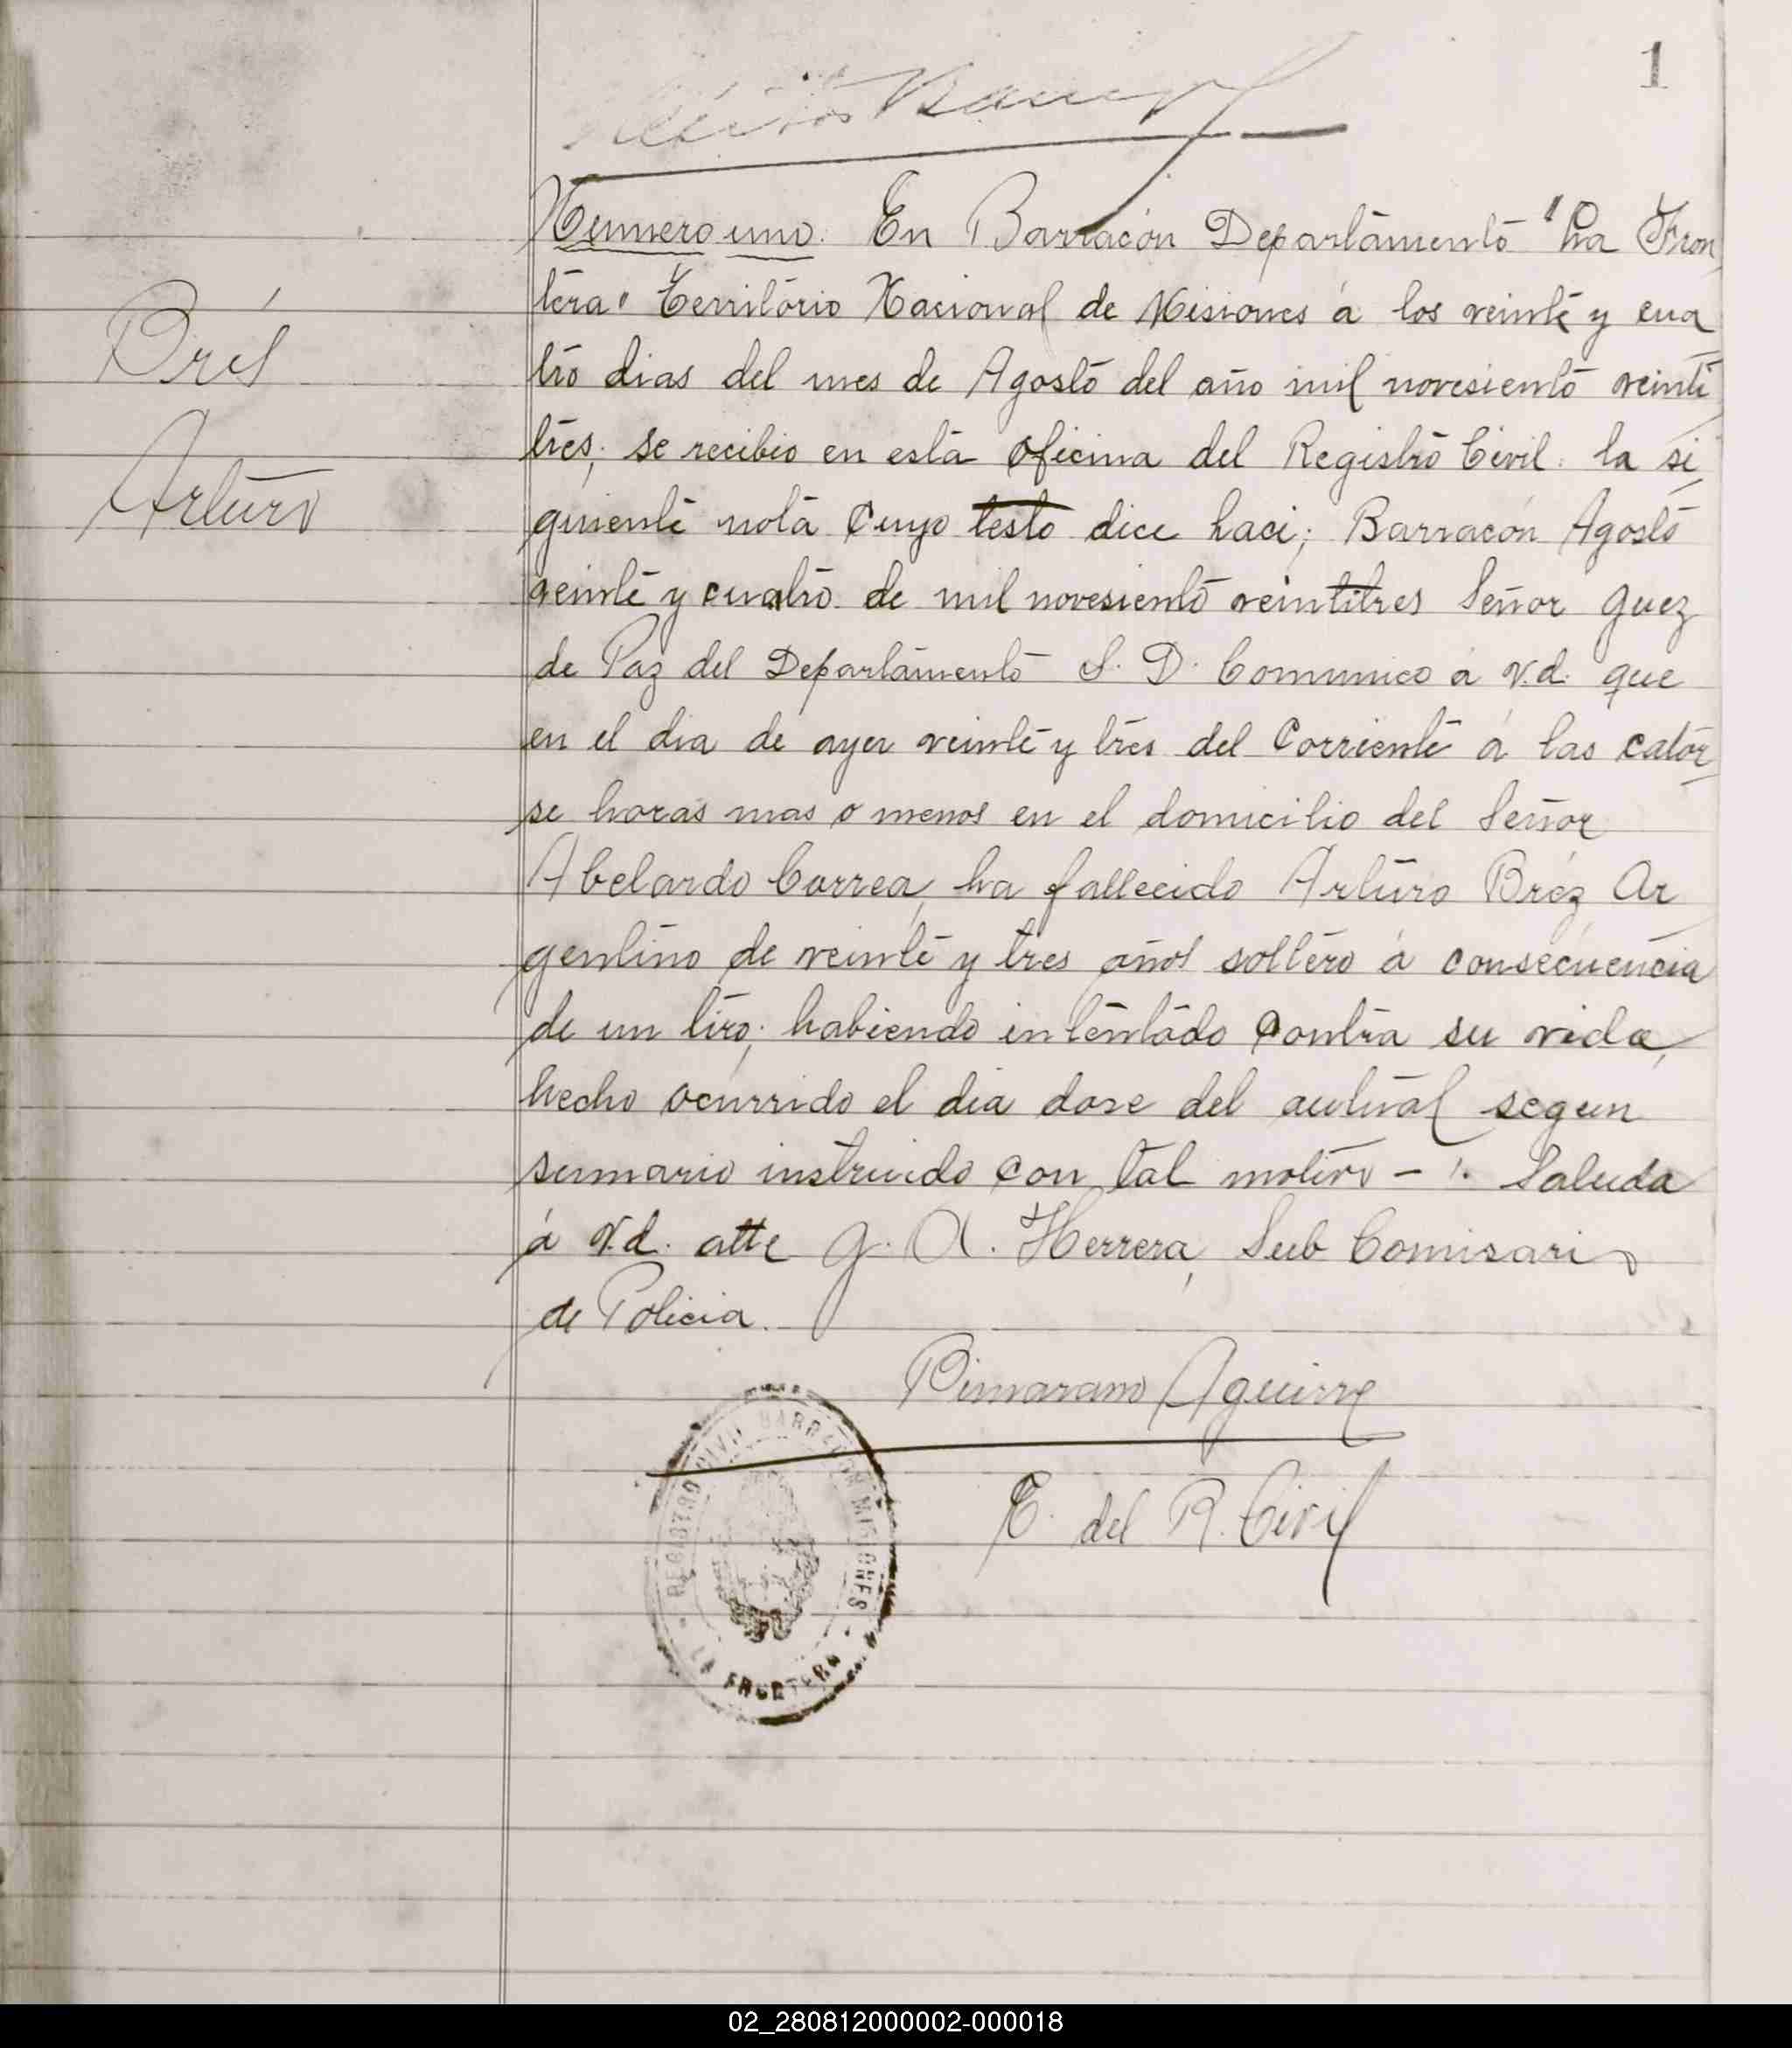 1
Numero uno. En Barracón Departamento "La Fron
tera" Territorio Nacional de Misiones á los veinte y cua
tro dias del mes de Agosto del año mil novesiento veinti
tres; se recibio en esta oficina del Registro Civil. la si
guiente nota cuyo testo dice haci; Barracón Agosto
veinte y cuatro de mil novesiento veintitres Señor Juez
de Paz del Departamento S. D. Comunico á v.d. que
en el dia de ayer veinte y tres del Corriente á las cator
se horas mas o menos en el domicilio del Señor
Abelardo Correa, ha fallecido Arturo Bréz Ar
gentino de veinte y tres años soltero á consecuencia
de un tiro; habiendo intentado contra su vida,
hecho ocurrido el dia dose del autual segun
sumario instruido con tal motivo - Saluda
á v.d. atte J. A. Herrera, Sub Comisario
de Policia.
Brés
Arturo
Aguirre
E. del R. Civil
REGISTRO CIVIL BARRACON MISIONES
LA FRONTERA
02_280812000002-000018